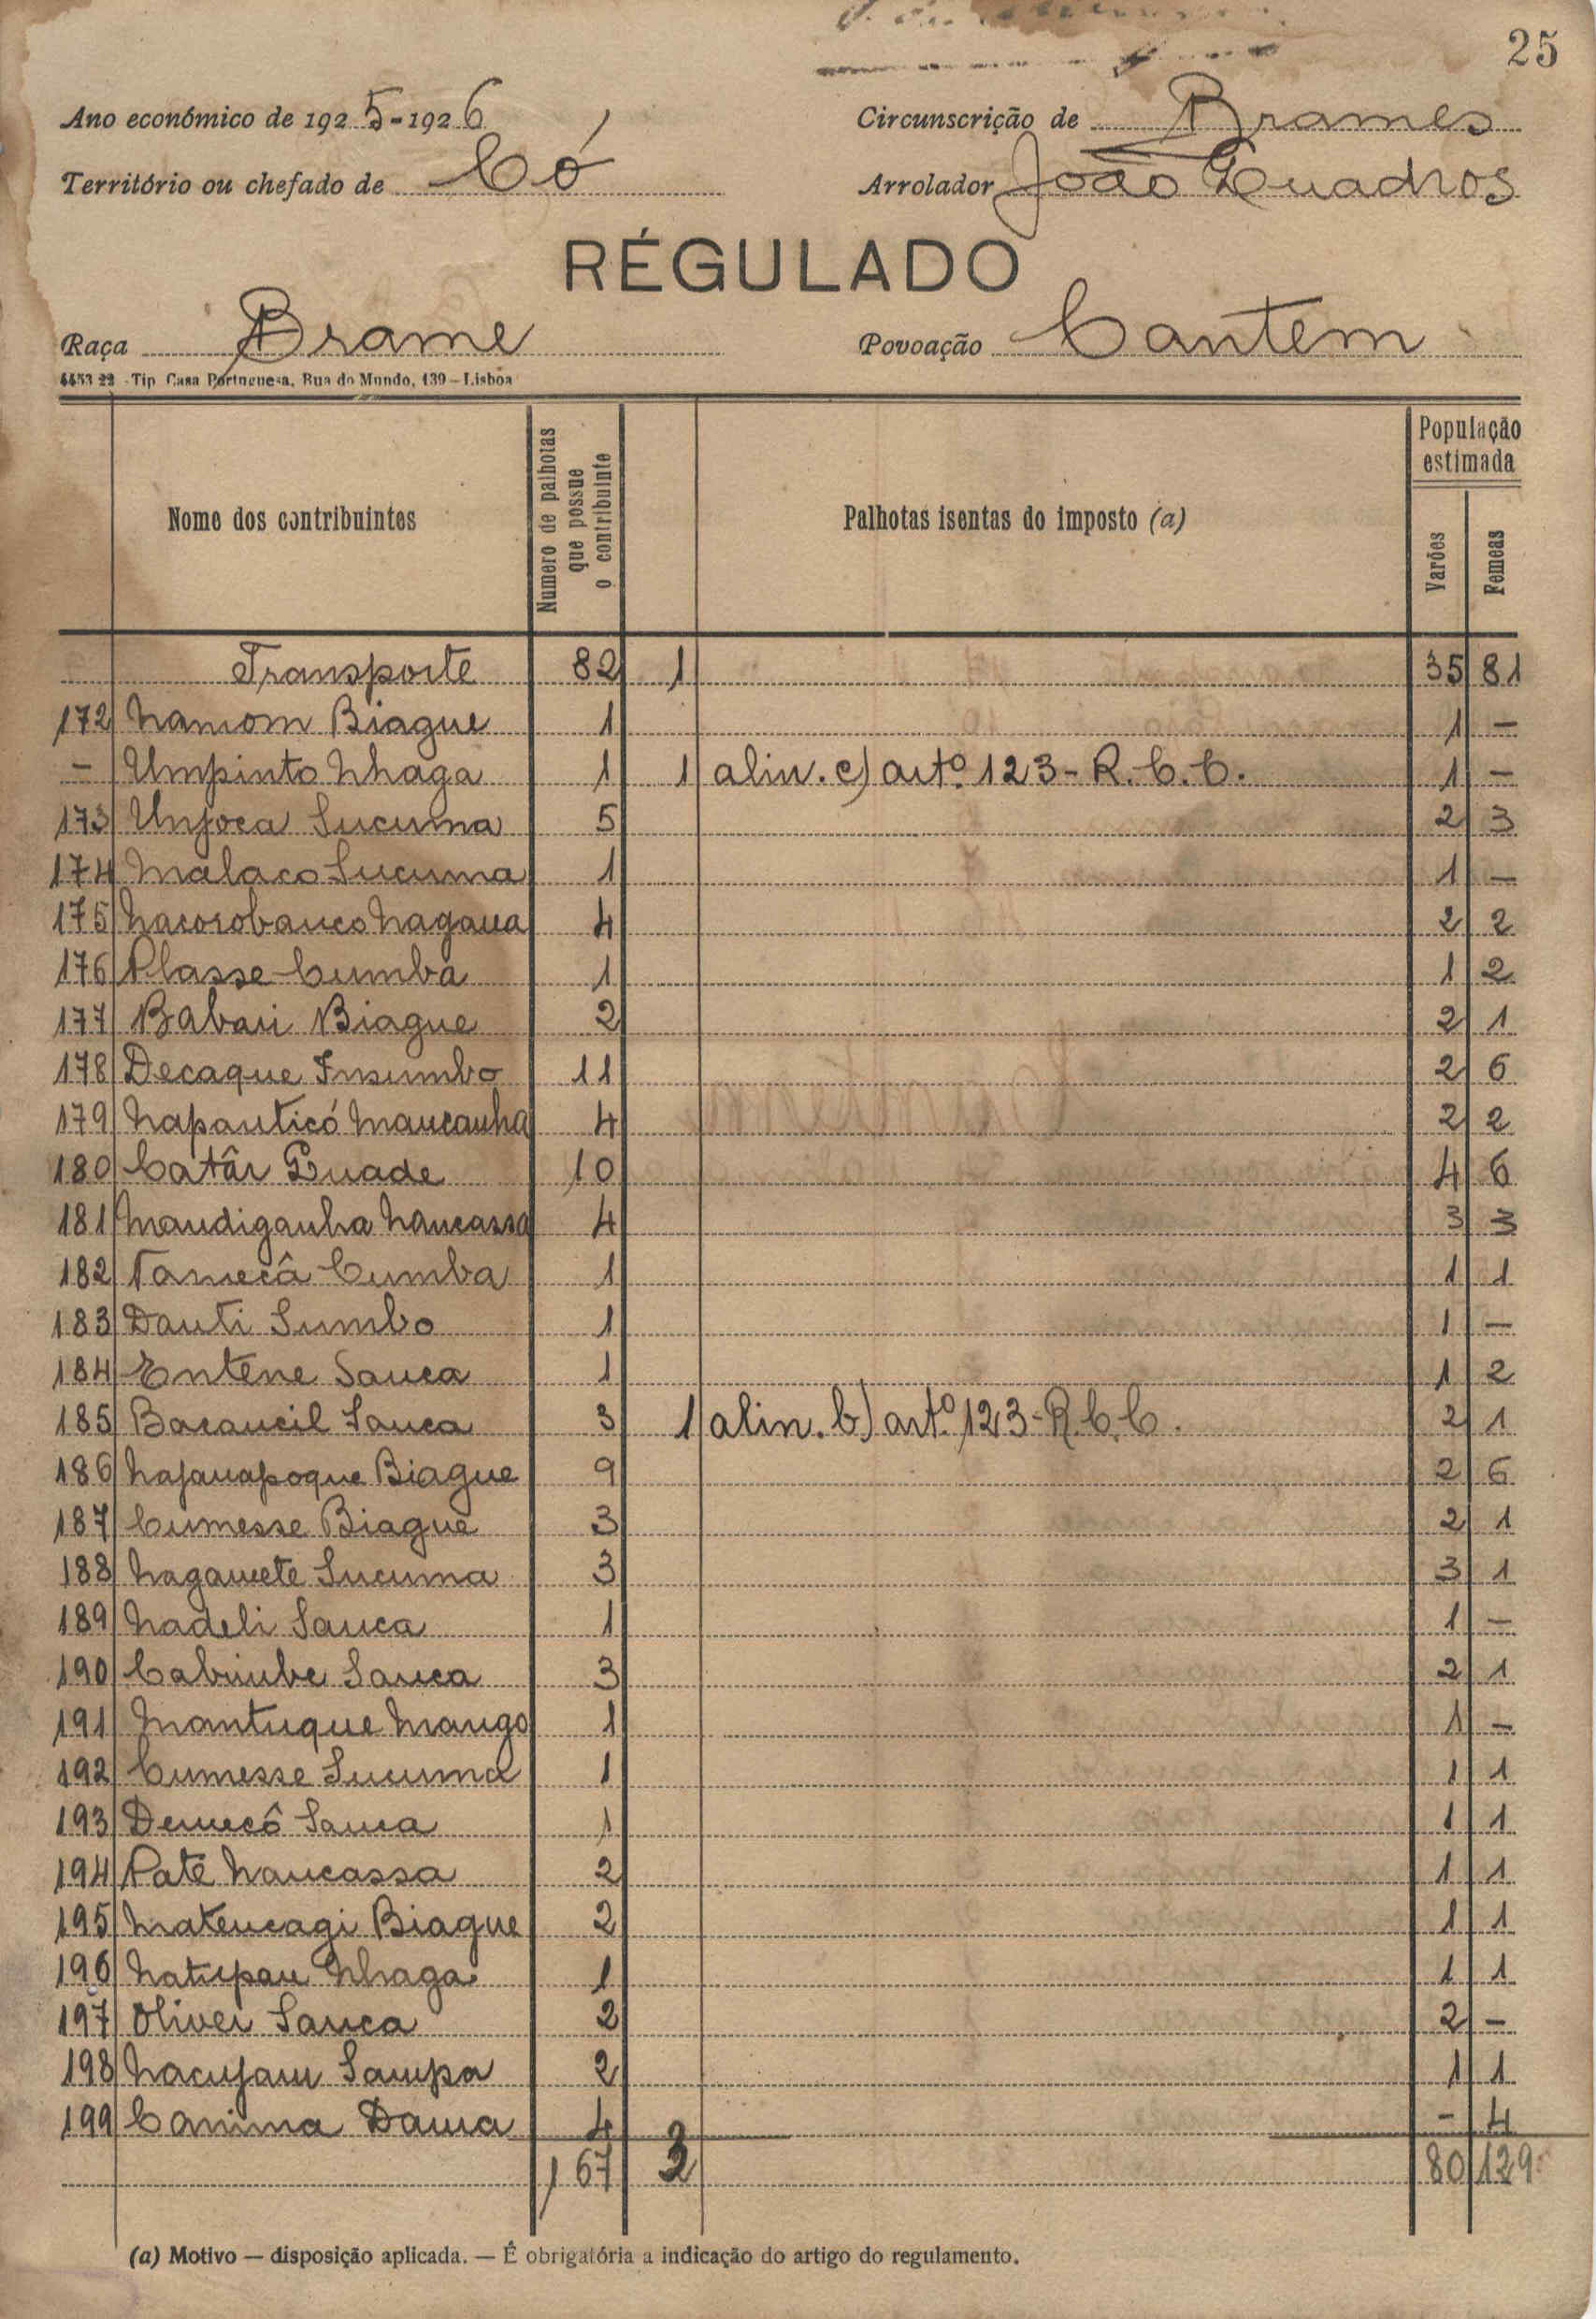 25
Ano económico de 1925-1926
Circunscrição de Brames
Território ou chefado de Có
Arrolador João Quadros
RÉGULADO
Raça Brame
Povoação Cantem
4453 22 - Tip Casa Portuguesa, Rua do Mundo, 139 – Lisboa
Nome dos contribuintes
Numero de palhotas que possue o contribuinte
Palhotas isentas do imposto (a)
População estimada
Varões
Femeas
Transporte 82 1 35 81
172 Namom Biague 1 1 –
– Umpinto Nhaga 1 1 alin. c) artº. 123 - R.C.C. 1 –
173 Unjoca Sucuma 5 2 3
174 Malaco Sucuma 1 1 –
175 Nacorobanco Nagana 4 2 2
176 Plasse Cumba 1 1 2
177 Babari Biague 2 2 1
178 Decaque Insumbo 11 2 6
179 Napanticó Mancanha 4 2 2
180 Catâr Quade 10 4 6
181 Mandiganha Nancassa 4 3 3
182 Tamecâ Cumba 1 1 1
183 Danti Sumbo 1 1 –
184 Entene Sanca 1 1 2
185 Bacancil Sanca 3 1 alin. b) artº. 123 - R.C.C. 2 1
186 Najanapoque Biague 9 2 6
187 Cumesse Biague 3 2 1
188 Nagamete Sucuma 3 3 1
189 Nadeli Sanca 1 1 –
190 Cabiimbe Sanca 3 2 1
191 Mantuque Mango 1 1 –
192 Cumesse Sucuma 1 1 1
193 Demecô Sanca 1 1 1
194 Pate Nancassa 2 1 1
195 Matencagi Biague 2 1 1
196 Natupan Nhaga 1 1 1
197 Oliver Sanca 2 2 –
198 Nacujam Sampa 2 1 1
199 Canima Dama 4 – 4
167 3 80 129
(a) Motivo — disposição aplicada. — É obrigatória a indicação do artigo do regulamento.